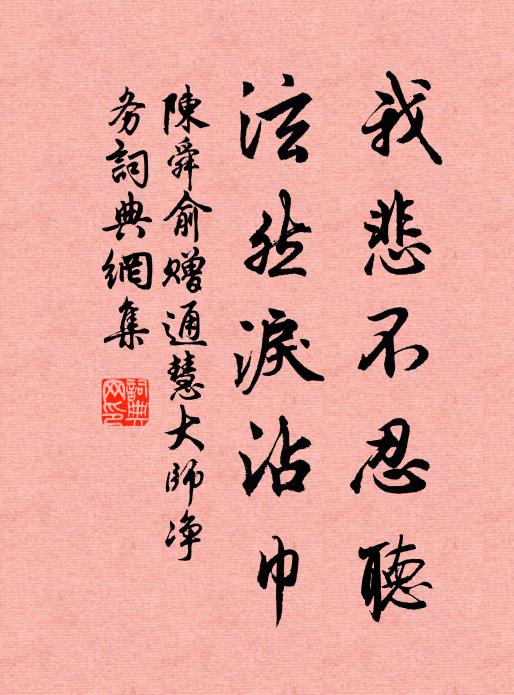 我悲不忍聽
泫然淚沾巾
陳舜俞贈通慧大師净
务詞典網集
詞典
网印